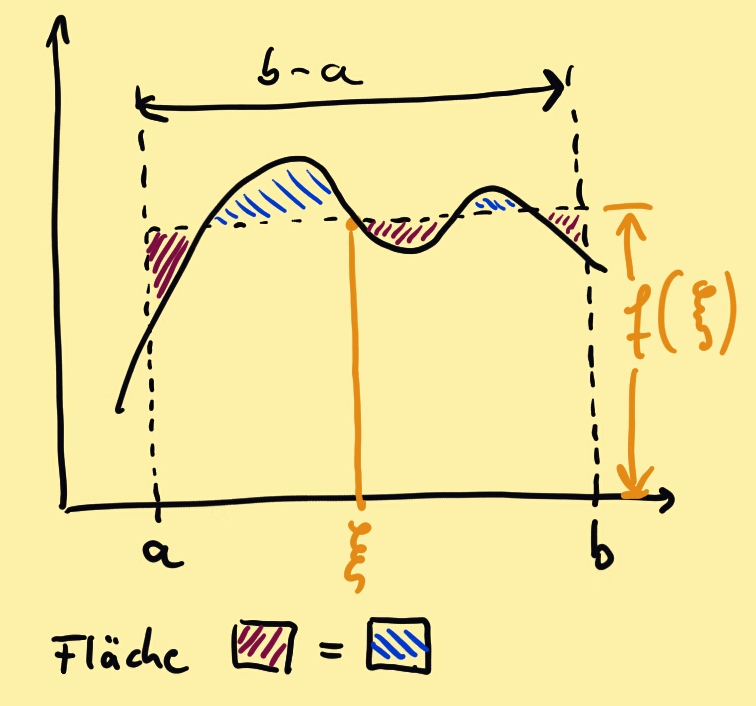 b-a
f(ξ)
a
ξ
b
Fläche =